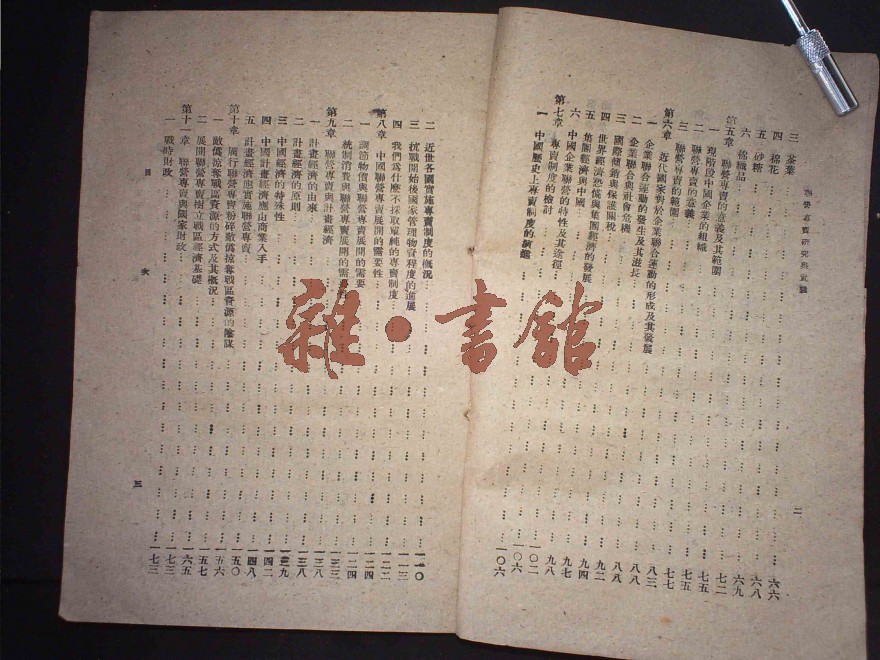 聯營專賣研究與實踐
三 茶葉 六六
四 棉花 六八
五 砂糖 六九
六 棉織品 七二
第五章 聯營專賣的意義及其範圍 七五
一 現階段中國企業的組織 七五
二 聯營專賣的意義 七七
三 聯營專賣的範圍
第六章 近代國家對於企業聯合運動的形成及其發展 八三
一 企業聯合運動的發生及其滋長 八八
二 企業聯合與社會危機 八八
三 國際傾銷與保護關稅 九二
四 世界經濟恐慌與集團經濟的發展 九四
五 集團經濟與中國 九七
六 中國企業聯營的特性及其途徑 九八
第七章 專賣制度的檢討 一〇二
一 中國歷史上專賣制度的演進 一〇六
二
二 近世各國實施專賣制度的概況 一一〇
三 抗戰開始後國家管理物資程度的進展 一一三
四 我們爲什麼不採取單純的專賣制度 一二二
第八章 中國聯營專賣展開的需要性 一二四
一 調節物價與聯營專賣展開的需要 一二四
二 統制消費與聯營專賣展開的需要性
第九章 聯營專賣與計畫經濟 一三三
一 計畫經濟的由來 一三八
二 計畫經濟的原則 一三八
三 中國經濟的特殊性 一三九
四 中國計畫經濟應由商業入手 一四二
五 計畫經濟應實施聯營專賣 一四八
第十章 厲行聯營專賣粉碎敵僞掠奪戰區資源的陰謀 一五〇
一 敵僞掠奪戰區資源的方式及其概況 一五六
二 展開聯營專賣樹立戰區經濟基礎 一五七
第十一章 聯營專賣與國家財政 一六五
一 戰時財政 一七三
目 次
三
雜·書館